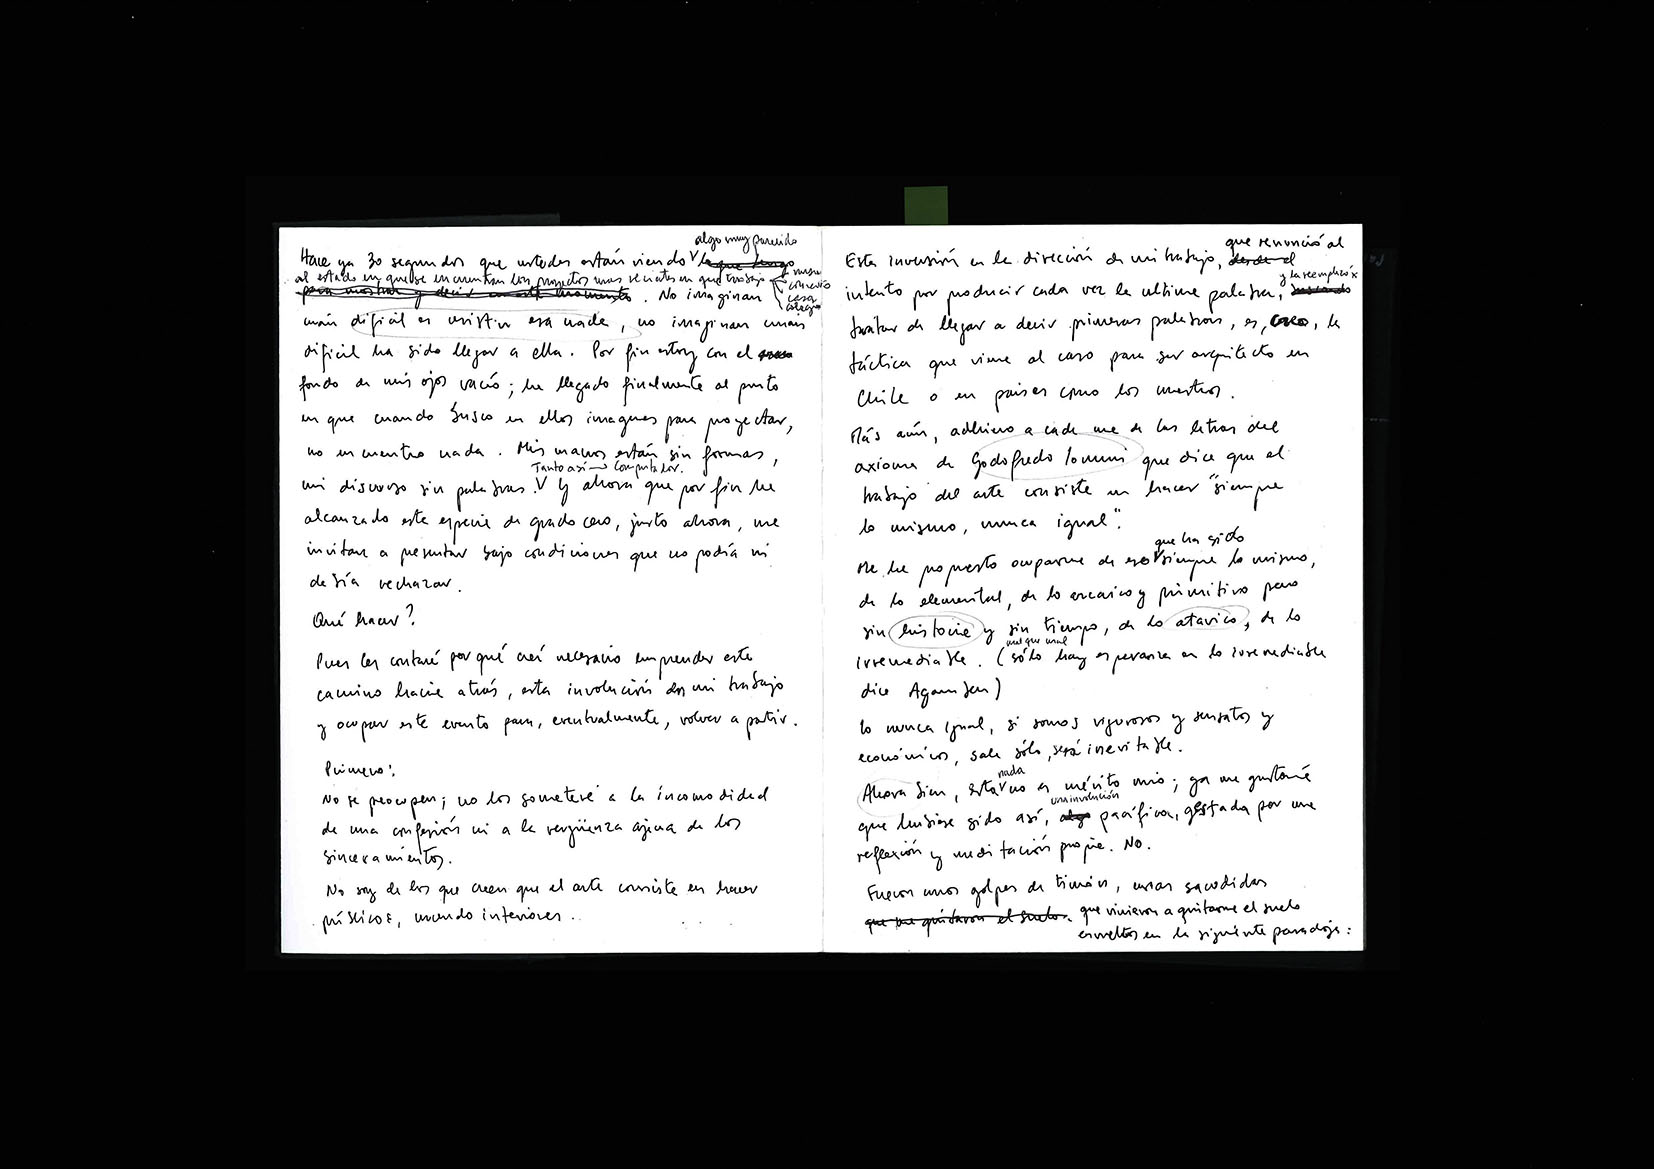 algo muy parecido
Hace ya 30 segundos que ustedes están viendo lo que tengo
al estado en que se encuentran los proyectos mas recientes en que trabajo
para mostrar y decir en este momento. No imaginan
museo
convento
casa
colegio
cuán dificil es resistir esa nada, no imaginan cuan
dificil ha sido llegar a ella. Por fin estoy con el
fondo de mis ojos vacío; he llegado finalmente al punto
en que cuando busco en ellos imagenes para proyectar,
no encuentro nada. Mis manos están sin formas,
Tanto así → computador.
mi discurso sin palabras. Y ahora que por fin he
alcanzado esta especie de grado cero, justo ahora, me
invitan a presentar bajo condiciones que no podía ni
debía rechazar.
Qué hacer?
Pues les contaré por qué creí necesario emprender este
camino hacia atrás, esta involución de mi trabajo
y ocupar este evento para, eventualmente, volver a partir.
Primero:
No se preocupen; no los someteré a la incomodidad
de una confesión ni a la vergüenza ajena de los
sinceramientos.
No soy de los que creen que el arte consiste en hacer
públicos, mundo interiores.
que renunció al
Esta inversión en la dirección de mi trabajo, desde el
y la reemplazó x
intento por producir cada vez la ultima palabra, buscando
tratar de llegar a decir primeras palabras, es, creo, la
táctica que viene al caso para ser arquitecto en
Chile o en paises como los nuestros.
Más aún, adhiero a cada una de las letras del
axioma de Godofredo Iommi que dice que el
trabajo del arte consiste en hacer "siempre
lo mismo, nunca igual".
que ha sido
Me he propuesto ocuparme de eso siempre lo mismo,
de lo elemental, de lo arcaico y primitivo pero
sin historia y sin tiempo, de lo atavico, de lo
mal que mal
irremediable. (sólo hay esperanza en lo irremediable
dice Agamben)
Lo nunca igual, si somos rigurosos y sensatos y
económicos, sale sólo, será inevitable.
nada
Ahora bien, esta no es mérito mio; ya me gustaría
una involución
que hubiese sido así, algo pacífica, gestada por una
reflexión y meditación propia. No.
Fueron unos golpes de timón, unas sacudidas
que me quitaron el suelo. que vinieron a quitarme el suelo
envueltos en la siguiente paradoja: